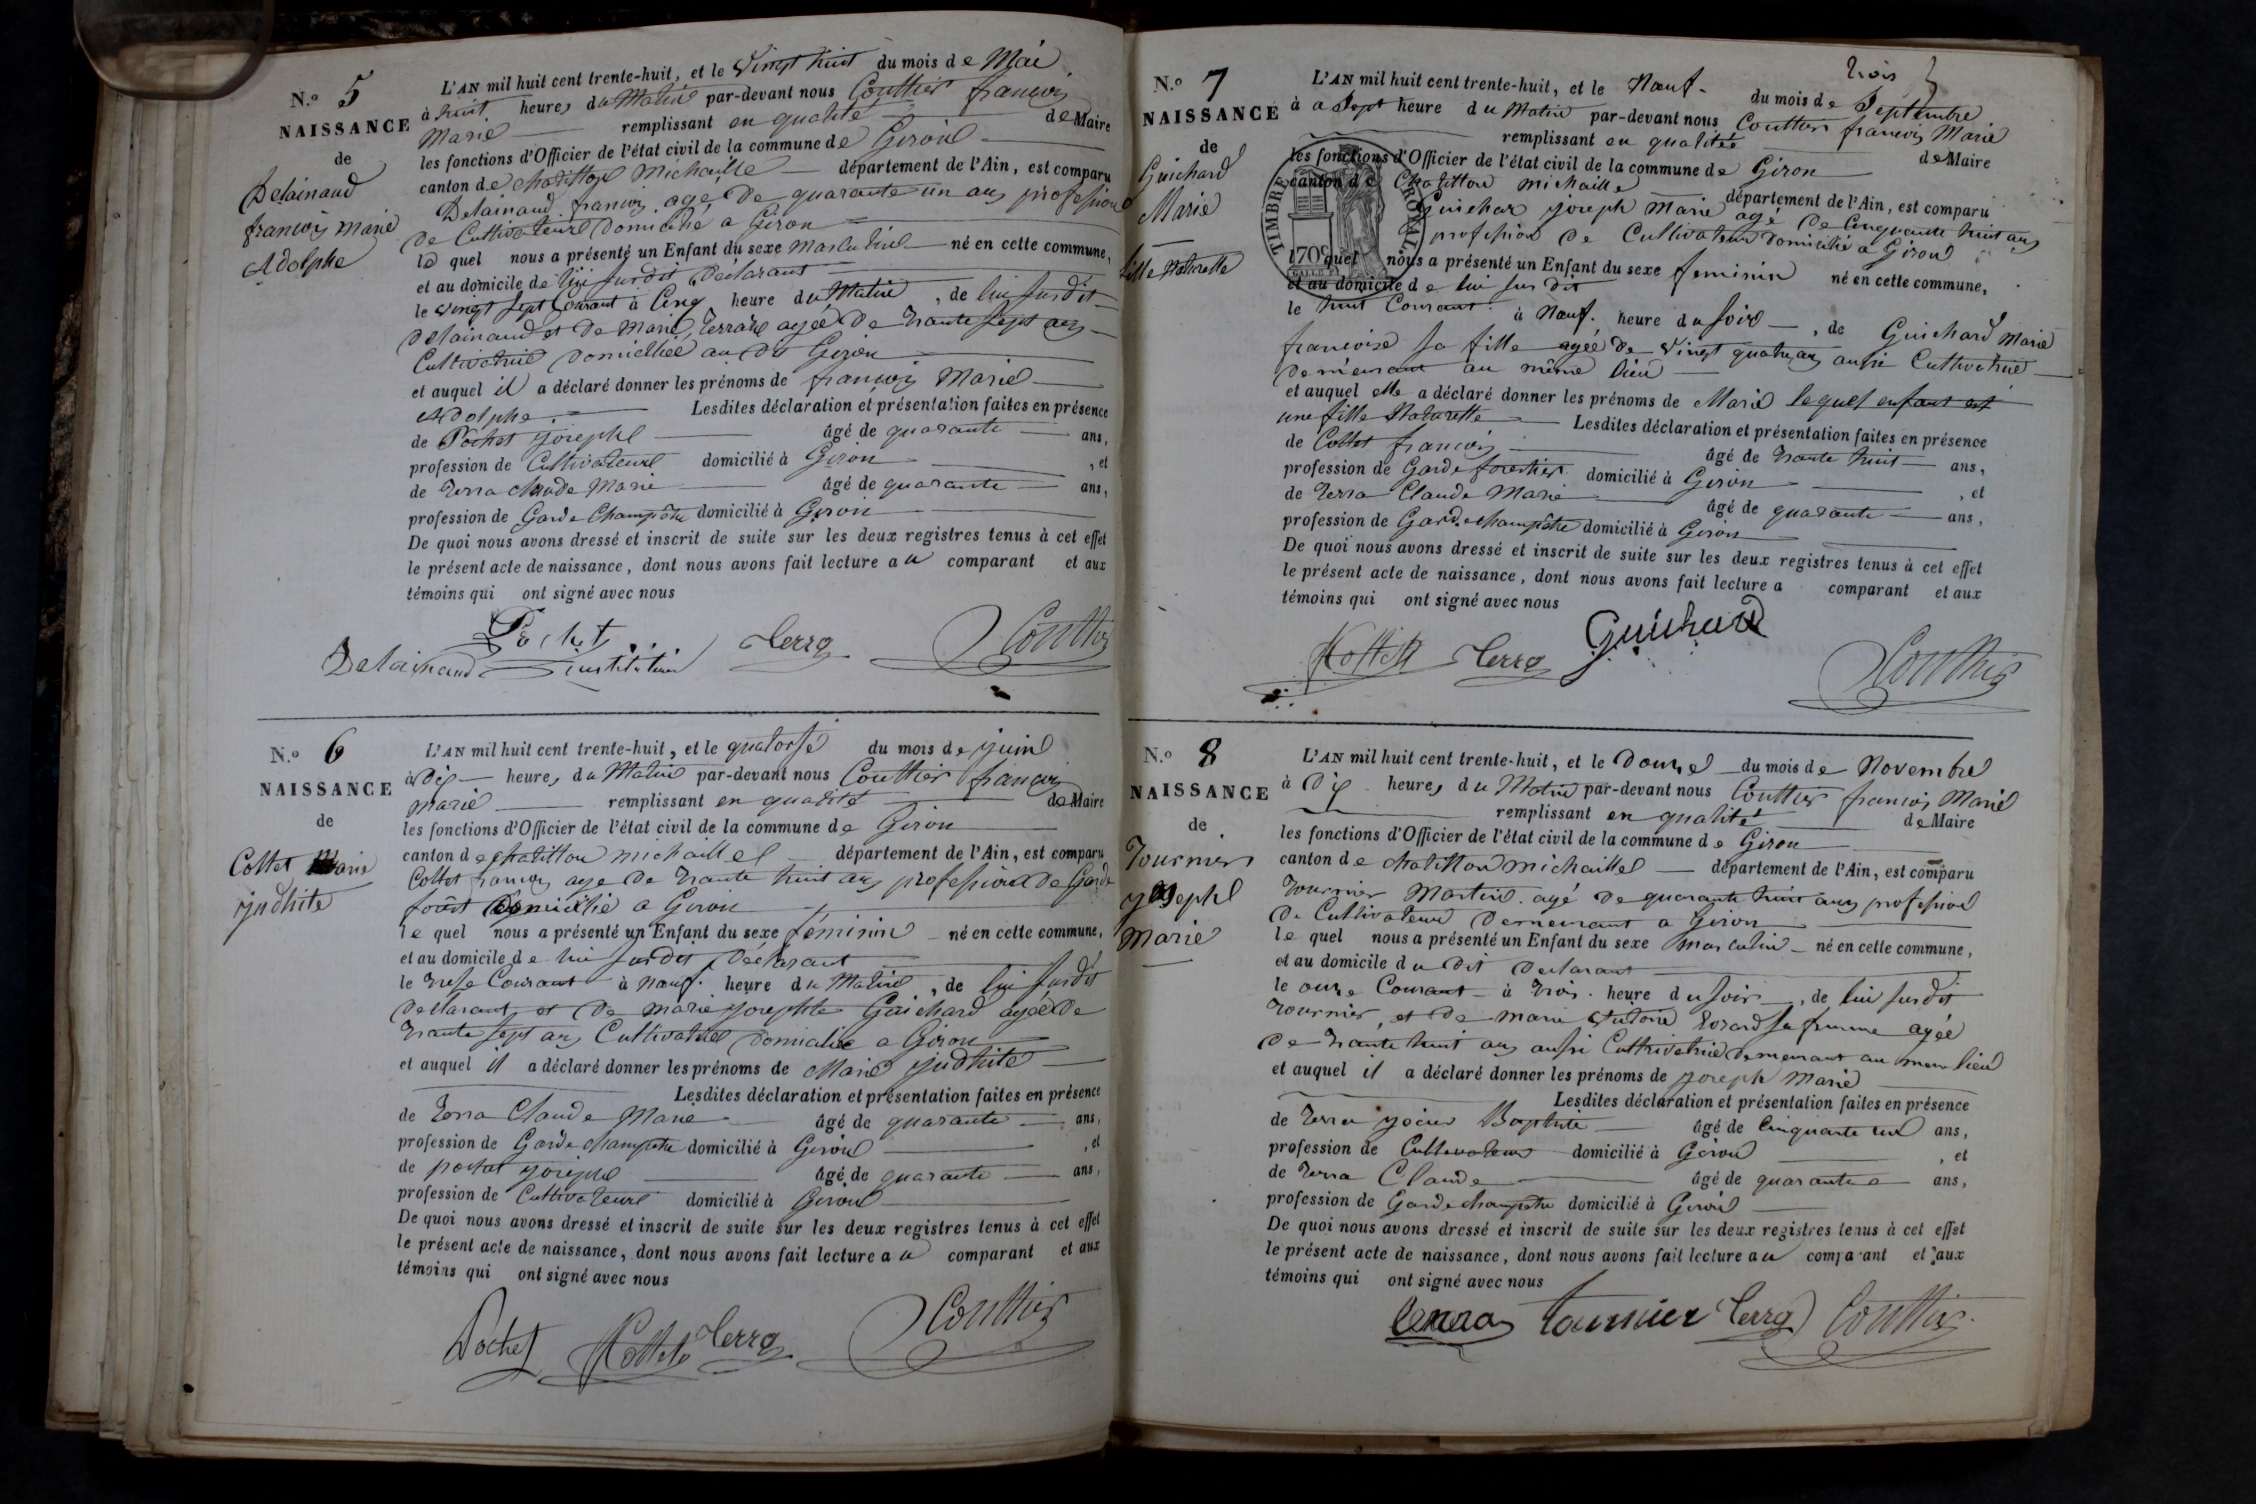 N.º 5
NAISSANCE
de
Delainaud
françois marie
Adolphe
L'AN mil huit cent trente-huit, et le Vingt huit du mois de Mai
à huit heures du Matin par-devant nous Couttier françois
Marie remplissant en qualité de Maire
les fonctions d'Officier de l'état civil de la commune de Giron
canton de chatillon Michaille département de l'Ain, est comparu
Delainaud françois agé de quarante un ans profession
de Cultivateur Domicilié a Giron
le quel nous a présenté un Enfant du sexe Masculin né en cette commune,
et au domicile de lui susdit Déclarant
le vingt sept Courant à Cinq heure du Matin, de lui susdit
delainaud et de Marie Terraz agée de trante sept ans
Cultivatrice domiciliée au dit Giron
et auquel il a déclaré donner les prénoms de françois Marie
Adolphe Lesdites déclaration et présentation faites en présence
de Pochet joseph âgé de quarante ans,
profession de Cultivateur domicilié à Giron, et
de Terra claude Marie âgé de quarante ans,
profession de Garde Champêtre domicilié à Giron
De quoi nous avons dressé et inscrit de suite sur les deux registres tenus à cet effet
le présent acte de naissance, dont nous avons fait lecture au comparant et aux
témoins qui ont signé avec nous
Pochet Terra Couttier
Delainaud
N.º 6
NAISSANCE
de
Collet Marie
judhite
L'AN mil huit cent trente-huit, et le quatorse du mois de juin
à Dix heures du Matin par-devant nous Couttier françois
marie remplissant en qualité de Maire
les fonctions d'Officier de l'état civil de la commune de Giron
canton de chatillon michaillel département de l'Ain, est comparu
Collet françois age de trante huit ans profession de Garde
forêt domicilié a Giron
le quel nous a présenté un Enfant du sexe féminin né en cette commune,
et au domicile de lui susdit Déclarant
le trese Courant à neuf heure du Matin, de lui susdit
declarant et de marie josephte Guichard agée de
trante sept ans Cultivatrice domicilie a Giron
et auquel il a déclaré donner les prénoms de Marie judhite
Lesdites déclaration et présentation faites en présence
de Terra Claude Marie âgé de quarante ans,
profession de Garde champetre domicilié à Giron, et
de pochat joseph âgé de quarante ans,
profession de Cultivateur domicilié à Giron
De quoi nous avons dressé et inscrit de suite sur les deux registres tenus à cet effet
le présent acte de naissance, dont nous avons fait lecture au comparant et aux
témoins qui ont signé avec nous
Pochet Collet Terra Couttier
N.º 7
NAISSANCE
de
Guichard
Marie
fille Naturelle
trois
L'AN mil huit cent trente-huit, et le Neuf du mois de Septembre
à a Sept heure du Matin par-devant nous Couttier françois Marie
remplissant en qualitée de Maire
les fonctions d'Officier de l'état civil de la commune de Giron
canton de Chatillon michaille département de l'Ain, est comparu
Guichar joseph Marie agé de Cinquante huit ans
profession de Cultivateur domicilié a Giron
quel nous a présenté un Enfant du sexe feminin né en cette commune,
et au domicile de lui sus dit
le huit Courant à Neuf heure du soir, de Guichard Marie
francoise sa fille agée de Vingt quatre ans aussi Cultivatrice
demeurant au même lieu
et auquel elle a déclaré donner les prénoms de Marie lequel enfant est
une fille Naturelle Lesdites déclaration et présentation faites en présence
de Collet françois âgé de trante huit ans,
profession de Garde forestier domicilié à Giron, et
de Terra Claude Marie âgé de quarante ans,
profession de Garde champêtre domicilié à Giron
De quoi nous avons dressé et inscrit de suite sur les deux registres tenus à cet effet
le présent acte de naissance, dont nous avons fait lecture a comparant et aux
témoins qui ont signé avec nous
Collet Terra Guichard Couttier
TIMBRE ROYAL
170c
N.º 8
NAISSANCE
de
Tournier
joseph
Marie
L'AN mil huit cent trente-huit, et le Douze du mois de Novembre
à Dix heures du Matin par-devant nous Couttier francois Marie
remplissant en qualité de Maire
les fonctions d'Officier de l'état civil de la commune de Giron
canton de chatillon michaillel département de l'Ain, est comparu
Tournier Martin agé de quarante huit ans profession
de Cultivateur demeurant a Giron
le quel nous a présenté un Enfant du sexe masculin né en cette commune,
et au domicile du dit declarant
le onze Courant à trois heure du soir, de lui susdit
Tournier, et de marie sa femme agée
de trante huit ans aussi Cultivatrice demeurant au mem lieu
et auquel il a déclaré donner les prénoms de joseph Marie
Lesdites déclaration et présentation faites en présence
de Terra Baptiste âgé de Cinquante un ans,
profession de Cultivateur domicilié à Giron, et
de Terra Claude âgé de quarante ans,
profession de Garde champetre domicilié à Giron
De quoi nous avons dressé et inscrit de suite sur les deux registres tenus à cet effet
le présent acte de naissance, dont nous avons fait lecture au comparant et aux
témoins qui ont signé avec nous
Terra Tournier Terra Couttier